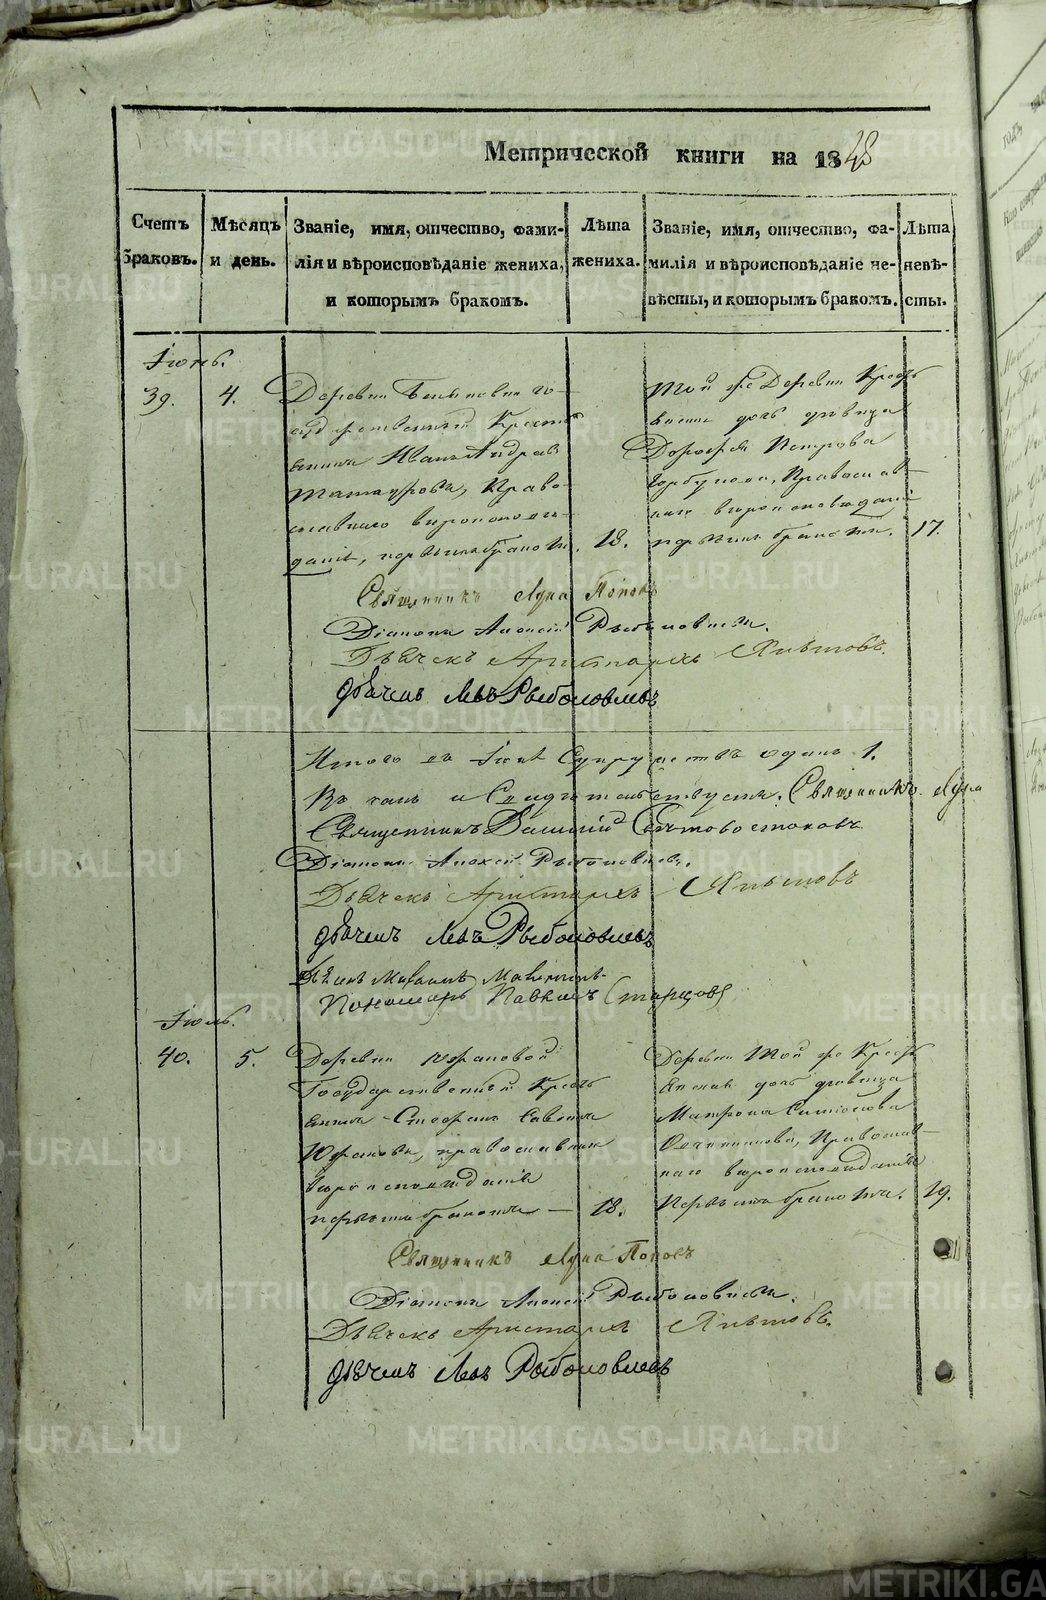 METRIKI.GASO-URAL.RU
Метрической книги на 1848
Счетъ браковъ.
Мѣсяцъ и день.
Званіе, имя, отчество, фами-
лія и вѣроисповѣданіе жениха,
и которымъ бракомъ.
Лѣта жениха.
Званіе, имя, отчество, фа-
милія и вѣроисповѣданіе не-
вѣсты, и которымъ бракомъ.
Лѣта невѣ-
сты.
Іюнь.
39. 4.
Деревни го-
сударственный Кресть
янинъ Иванъ Андреевъ
Право-
славнаго вѣроисповѣ-
данія, первымъ бракомъ. 18.
Той же Деревни Кресть
янина дочь дѣвица
Дорофея Петрова
Горбунова, Православ-
наго вѣроисповѣданія
первымъ бракомъ. 17.
Священникъ Лука Поповъ
Діаконъ Алексій Рыболовлевъ.
Дьячекъ Аристархъ
Дьячекъ Левъ Рыболовлевъ
Итого въ Іюнѣ Супружествъ одинъ 1.
Въ чемъ и Свидѣтельствуемъ. Священникъ Лука
Священникъ Василій
Діаконъ Алексій Рыболовлевъ.
Дьячекъ Аристархъ
Дьячекъ Левъ Рыболовлевъ
Дьячекъ Михаилъ
Пономарь Павелъ Старцовъ
Іюль.
40. 5.
Деревни Юфановой
Государственный Кресть
янинъ Стефанъ Савинъ
Юфановъ, православнаго
вѣроисповѣданія
первымъ бракомъ — 18.
Деревни той же Кресть
янская дочь дѣвица
Матрона
Овчинникова, Православ-
наго вѣроисповѣданія
Первымъ бракомъ. 19.
Священникъ Лука Поповъ
Діаконъ Алексій Рыболовлевъ.
Дьячекъ Аристархъ
Дьячекъ Левъ Рыболовлевъ